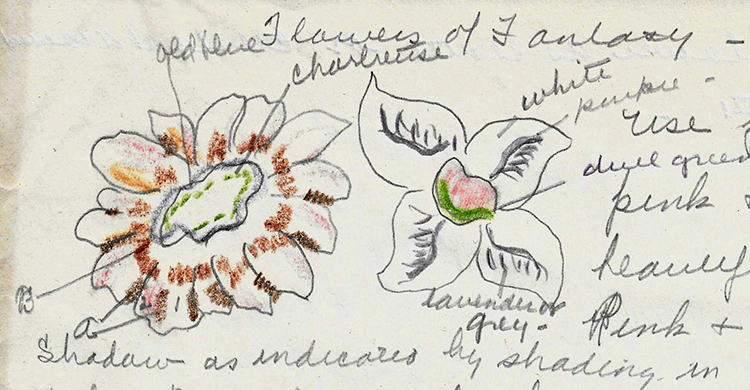 Flowers of Fantasy -
old blue
chartreuse
white
purple -
Use
dull green
pink &
heavily
Pink &
B
a
lavender or
grey -
Shadow as indicated by shading in